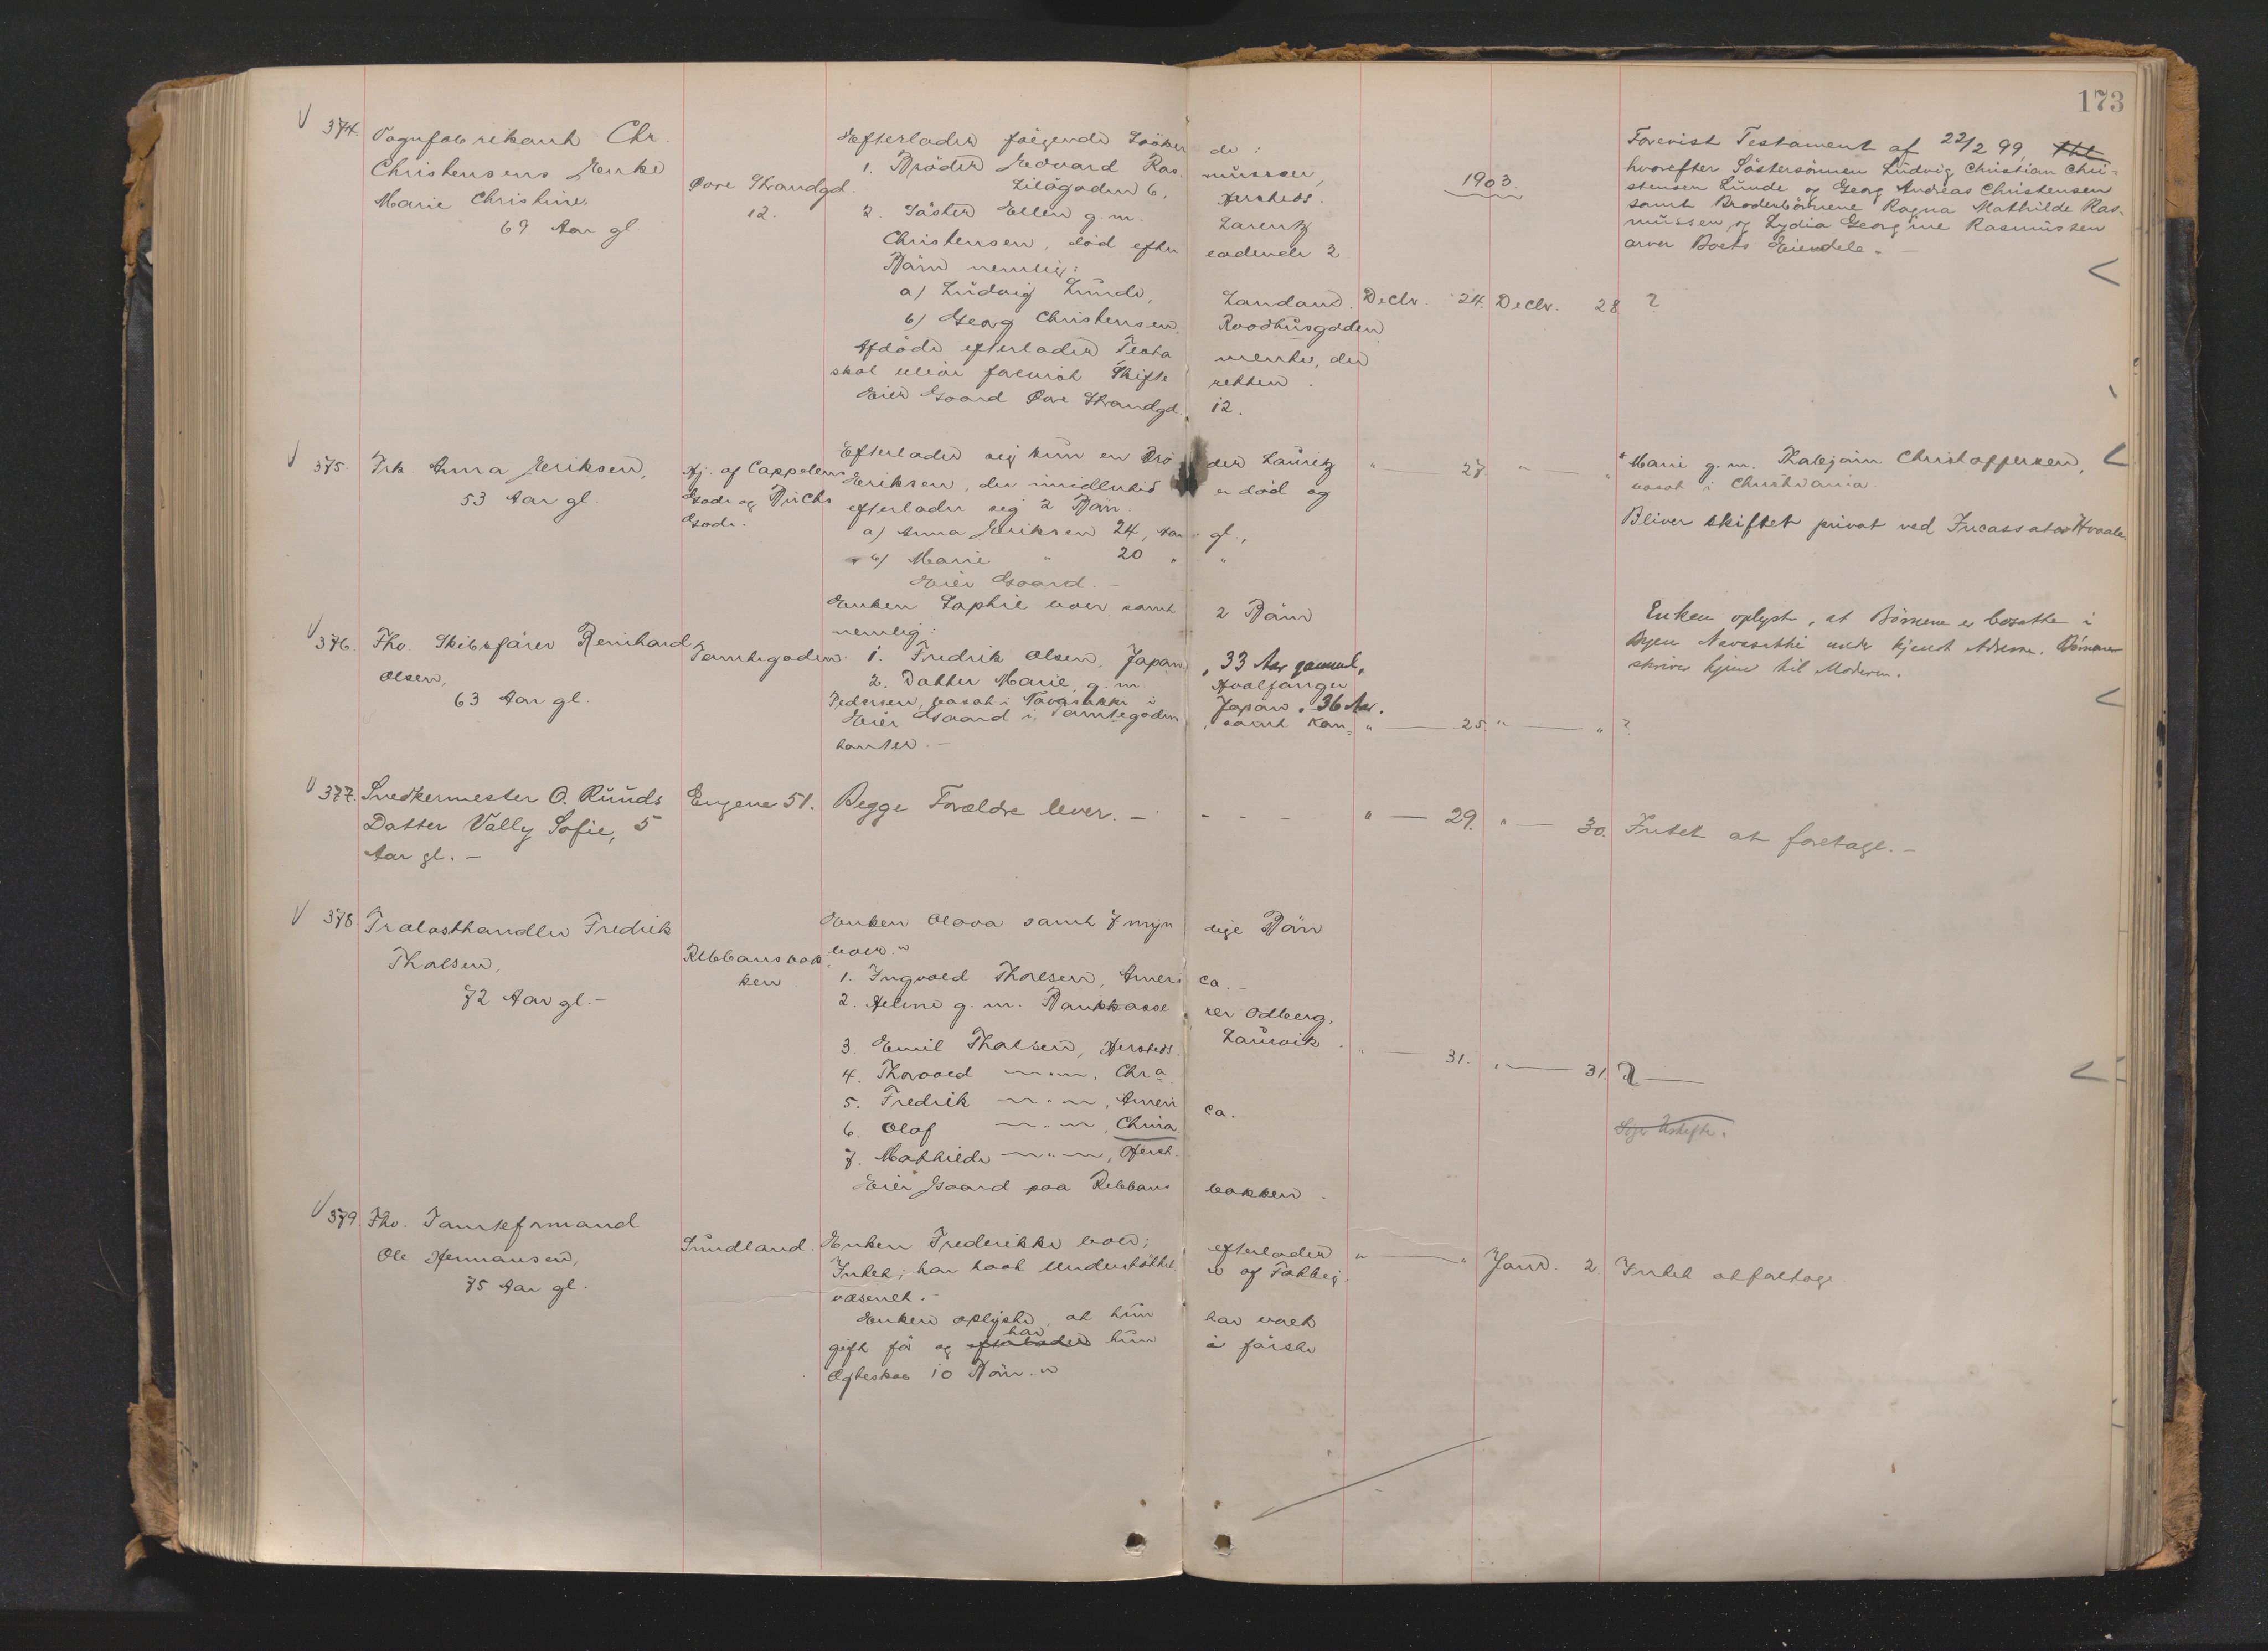 173
V 374. Vognfabrikant Chr.
Christensens Enke
Marie Christine,
69 Aar gl.
Øvre Strandgd.
12.
Efterlader følgende Sødsken de:
1. Broder Edvard Ras mussen,
Liløgaden 6, Hersteds.
2. Søster Ellen g. m. Larentz
Christensen, død efter ladende 2
Børn nemlig:
a) Ludvig Lunde, Landand.
b) Georg Christensen, Raadhusgaden
Afdøde efterlader Testa mente, der
skal blive forevist Skifte retten.
Eier Gaard Øvre Strandgd. 12.
1903.
Decbr. 24. Decbr. 28 ?
Forevist Testament af 22/2 99,
hvorefter Søstersønnen Ludvig Christian Chri-
stensen Lunde og Georg Andreas Christensen
samt Broderbørnene Ragna Mathilde Ras-
mussen og Lydia Georgine Rasmussen
arver Boets Eiendele. -
V 375. Frk. Anna Eriksen,
53 Aar gl.
Hj. af Cappelens
Gade og Buchs
Gade.
Efterlader sig kun en Bro der Lauritz
Eriksen, der imidlertid er død og
efterlader sig 2 Børn.
a) Anna Eriksen 24, Aar gl.,
b) Marie " 20 " "
Eier Gaard. -
" 27 " — "
* Marie g. m. Thalejørn Christoffersen,
bosat i Christiania.
Bliver skiftet privat ved Incassator Hvaale.
V 376. Fhv. Skibsfører Reinhard
Olsen,
63 Aar gl.
Tomtegaden.
Enken Sophie lever samt 2 Børn
nemlig:
1. Fredrik Olsen, Japan, 33 Aar gammel,
2. Datter Marie, g. m. Hvalfanger
Pedersen, bosat i Navasakki i Japan. 36 Aar.
Eier Gaard i Tomtegaden, samt Kon-
tanter. -
" — 25 " — " ?
Enken oplyst, at Børnene er bosatte i
Byen Navasakki uden kjendt Adresse. Børnene
skriver hjem til Moderen.
V 377. Snedkermester O. Ruuds
Datter Vally Sofie, 5
Aar gl. -
Engene 51.
Begge Forældre lever. - - - -
" — 29. " — 30. Intet at foretage. -
V 378 Trælasthandler Fredrik
Tholsen,
72 Aar gl. -
Ribbansbak
ken
Enken Olava samt 7 myn dige Børn
lever:
1. Ingvald Tholsen, Ameri ca. -
2. Helene g. m. Bankkasse rer Odberg,
Laurvik.
3. Emil Tholsen, Hersteds.
4. Thorvald — " —, Chra
5. Fredrik — " —, Ameri ca.
6. Olaf — " —, China
7. Mathilde — " —, Herst.
Eier Gaard paa Ribbans bakken.
" — 31. " — 31. ? —
V 379. Fhv. Tomteformand
Ole Hermansen,
75 Aar gl.
Sundland.
Enken Frederikke lever; efterlader
Intet; har havt Understøttel se af Fattig
væsenet. -
Enken oplyste, at hun har været
gift før og efterlader har hun i første
Ægteskab 10 Børn.
" — " Janr. 2. Intet at foretage